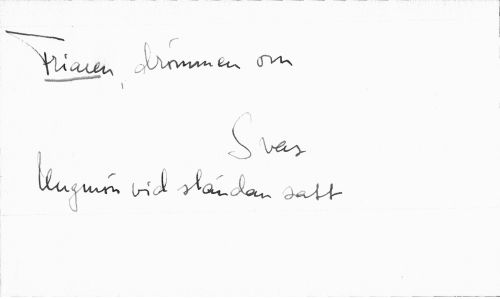 Friaren, drömmen om
Svar
Ungmön vid sländan satt